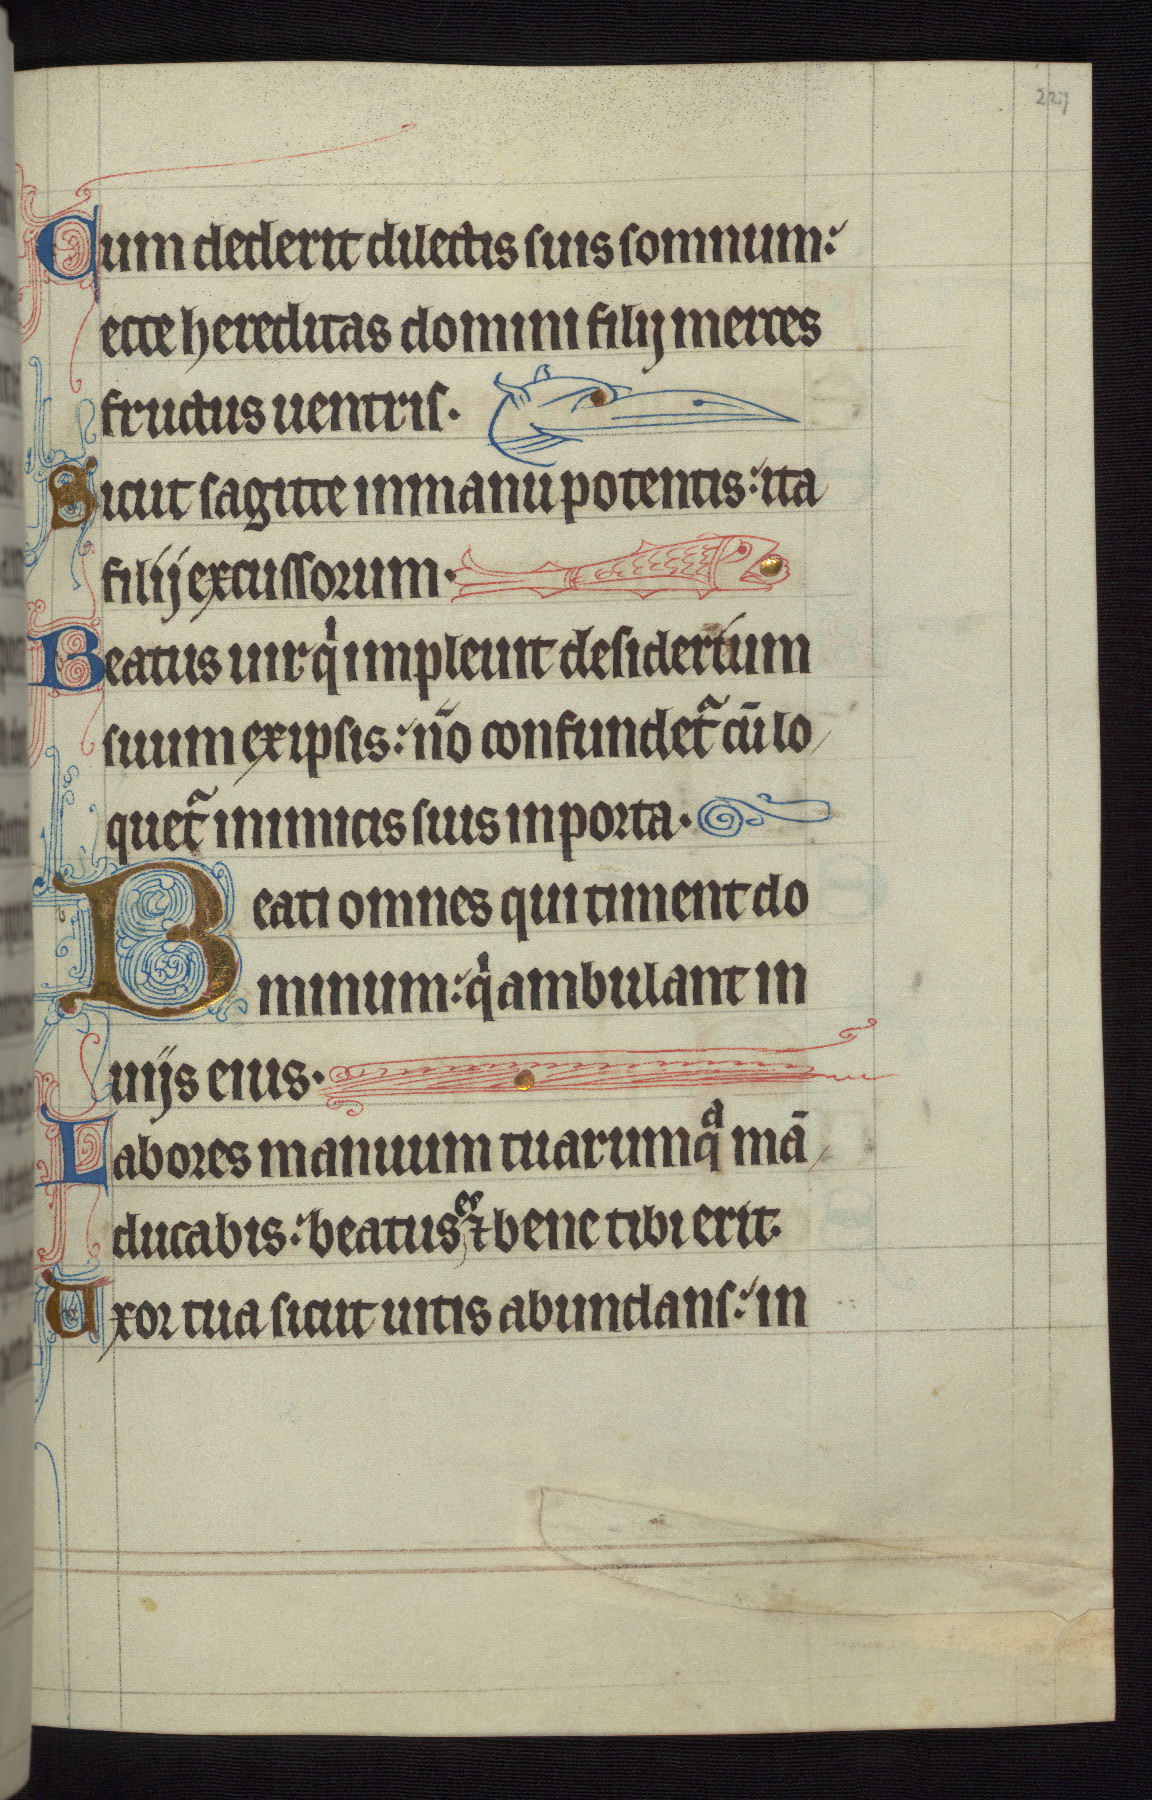 227
Cum dederit dilectis suis somnum:
ecce hereditas domini filij merces
fructus uentris.
Sicut sagitte in manu potentis: ita
filij excussorum.
Beatus uir qͥ impleuit desiderium
suum ex ipsis: nō confundet᷑ cū lo
quet᷑ inimicis suis in porta.
Beati omnes qui timent do
minum: qͥ ambulant in
uijs eius.
Labores manuum tuarum qͣ mā
ducabis: beatus es ⁊ bene tibi erit.
Uxor tua sicut uitis abundans: in